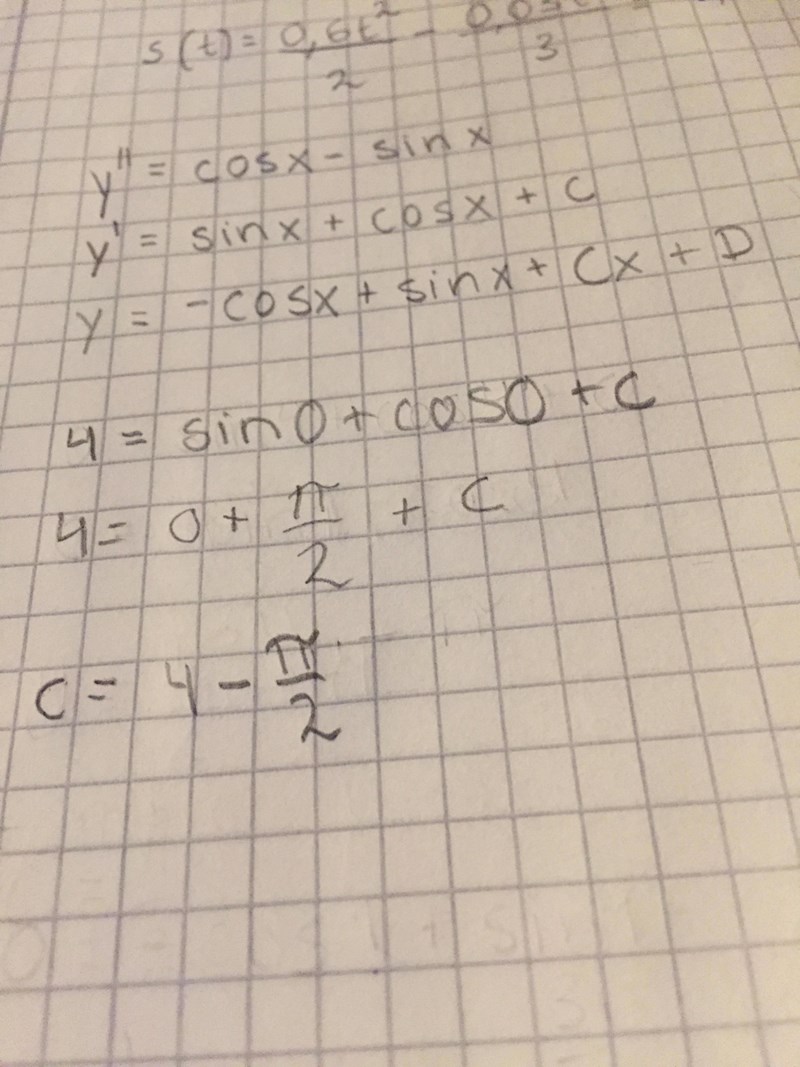 s(t) = 0,6t²/2 - 0,03/3
y'' = cosx - sinx
y' = sinx + cosx + C
y = -cosx + sinx + Cx + D
4 = sin0 + cos0 + C
4 = 0 + π/2 + C
C = 4 - π/2